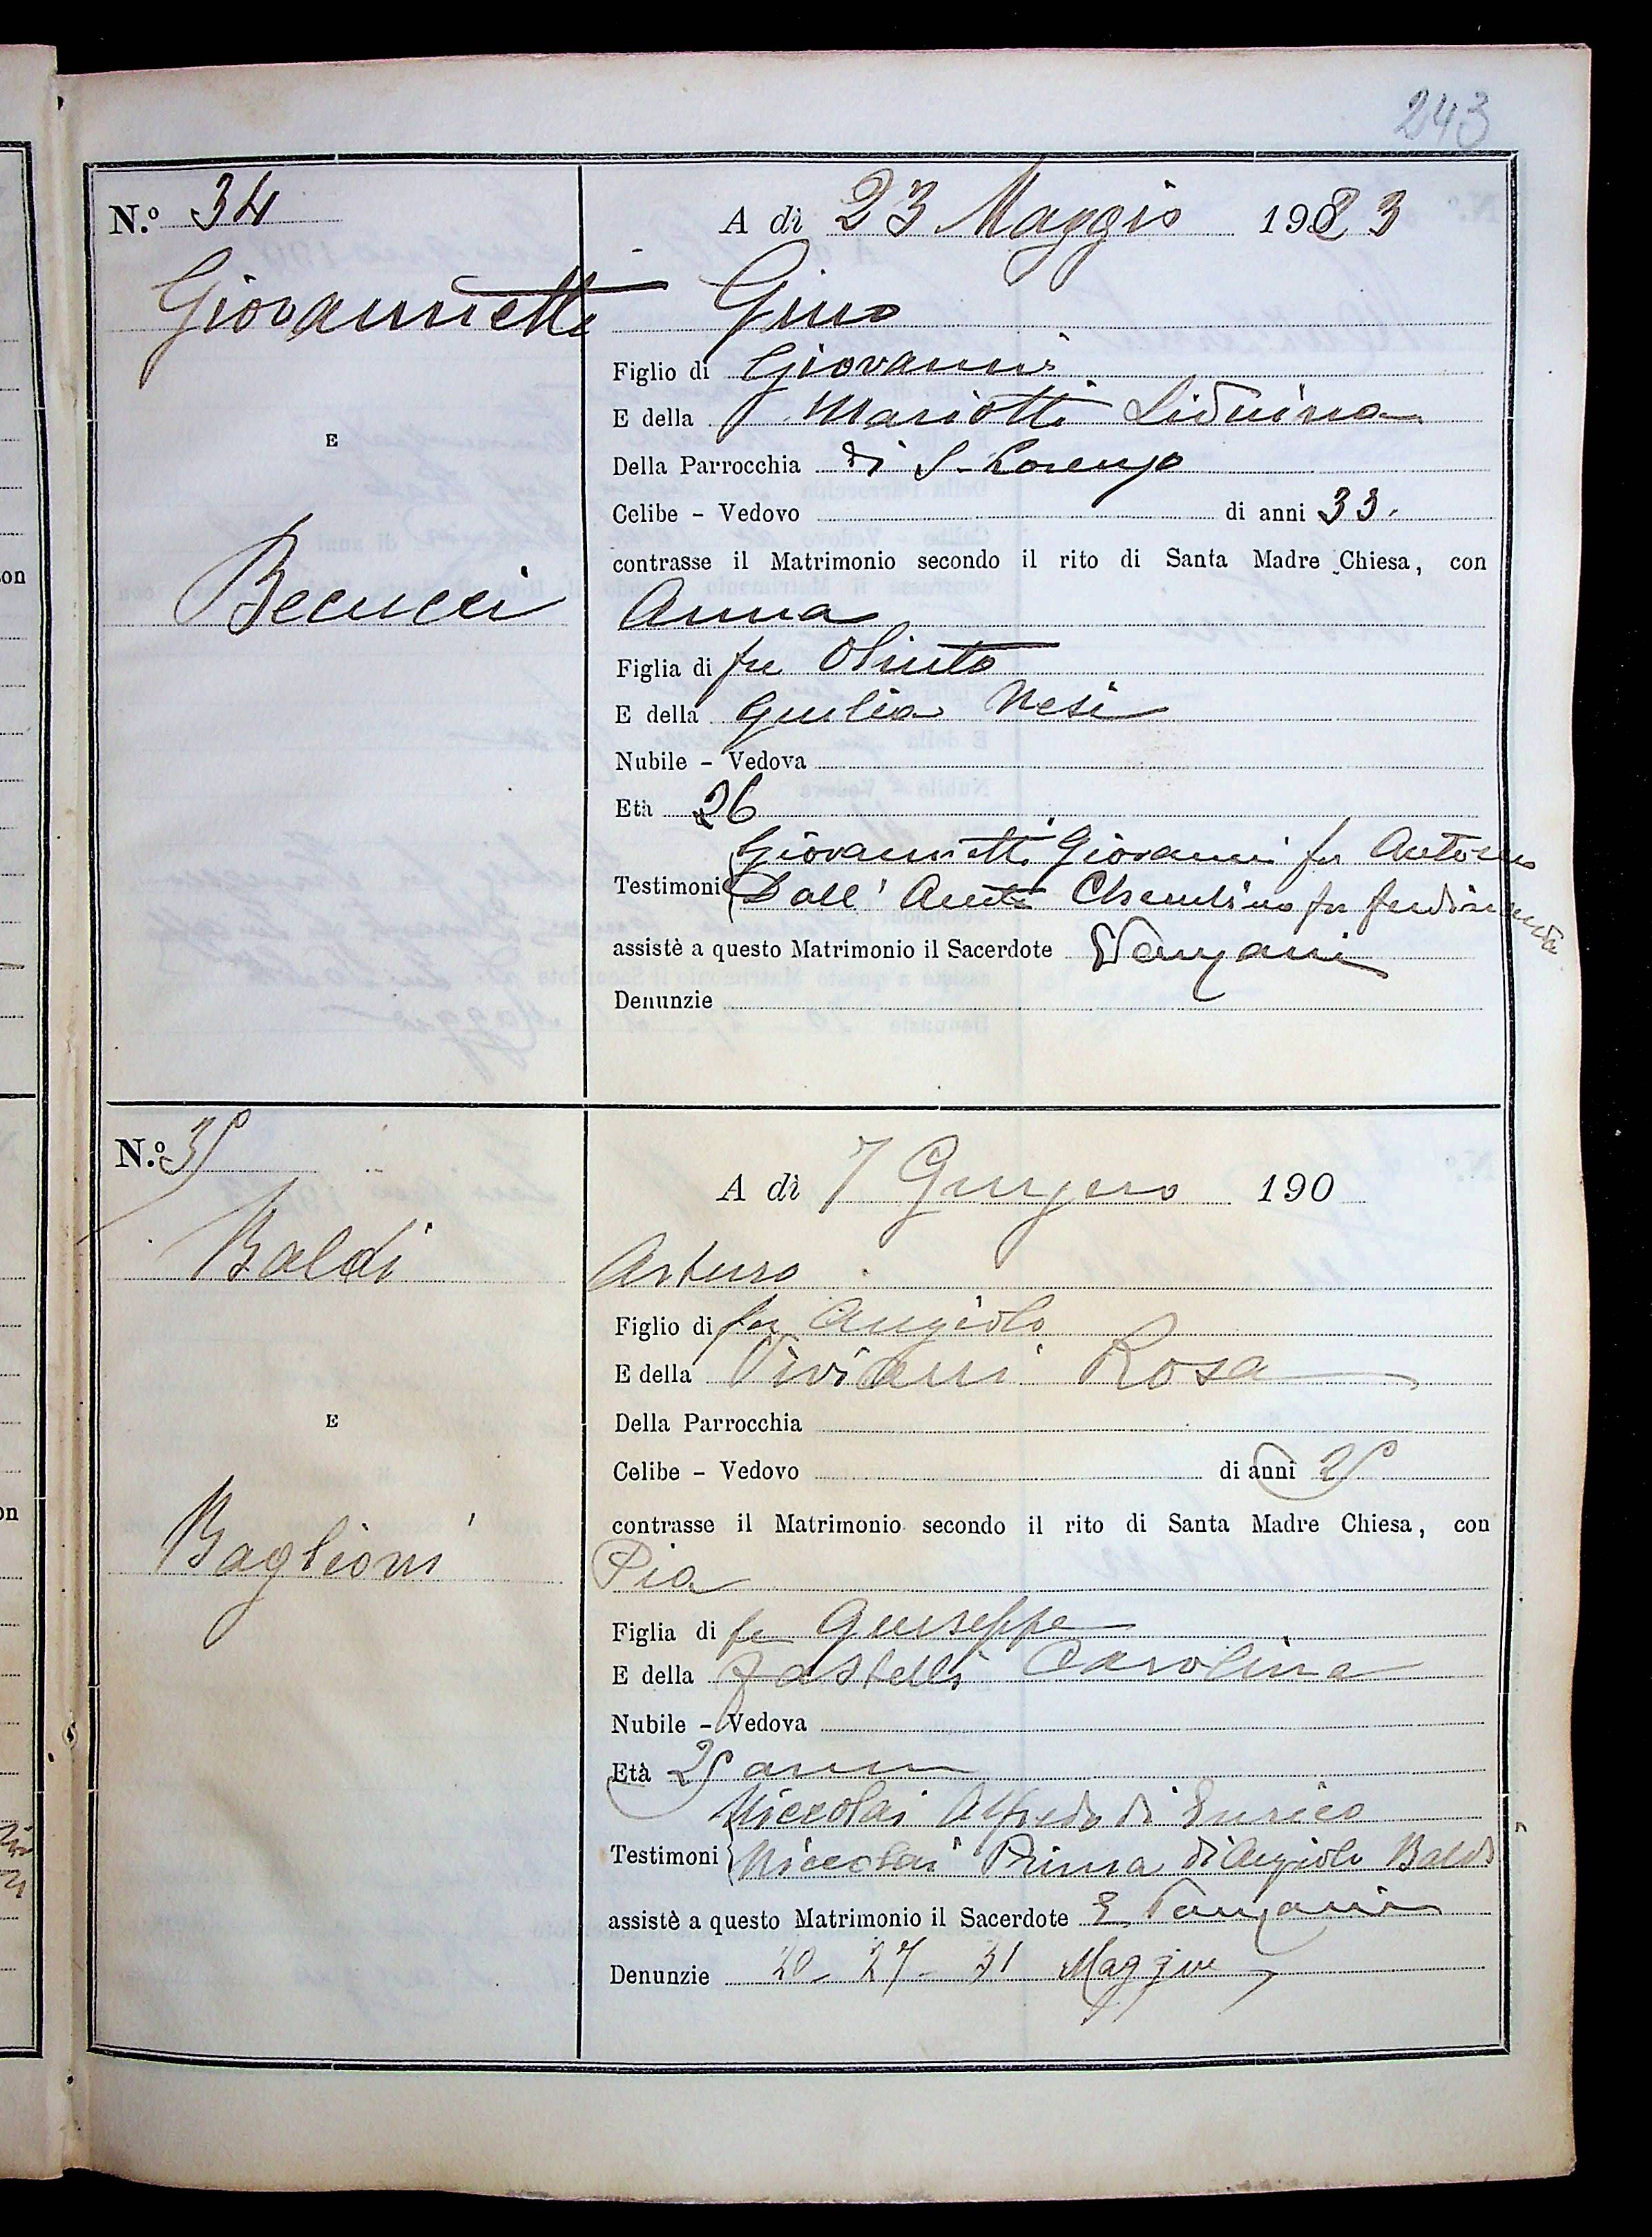 243
N.º 34
A dì 23 Maggio 1923
Giovannetti
Gino
Figlio di Giovanni
E della Mariotti Liduina
E
Della Parrocchia di S. Lorenzo
Celibe - Vedovo di anni 33.
contrasse il Matrimonio secondo il rito di Santa Madre Chiesa, con
Becucci
Anna
Figlia di fu Olinto
E della Giulia Nesi
Nubile - Vedova
Età 26
Giovannetti Giovanni fu Antonio
Testimoni Dall' Cherubino fu Ferdinando
assistè a questo Matrimonio il Sacerdote E Vanzani
Denunzie
N.º 35
A dì 7 Giugno 190
Baldi
Arturo
Figlio di fu Angiolo
E della Viviani Rosa
E
Della Parrocchia
Celibe - Vedovo di anni 25
contrasse il Matrimonio secondo il rito di Santa Madre Chiesa, con
Baglioni
Pia
Figlia di fu Giuseppe
E della Carolina
Nubile - Vedova
Età 25 anni
Niccolai Alfredo di Enrico
Testimoni Niccolai Prima di Angiolo Baldi
assistè a questo Matrimonio il Sacerdote E. Vanzani
Denunzie 20 - 27 - 31 Maggio